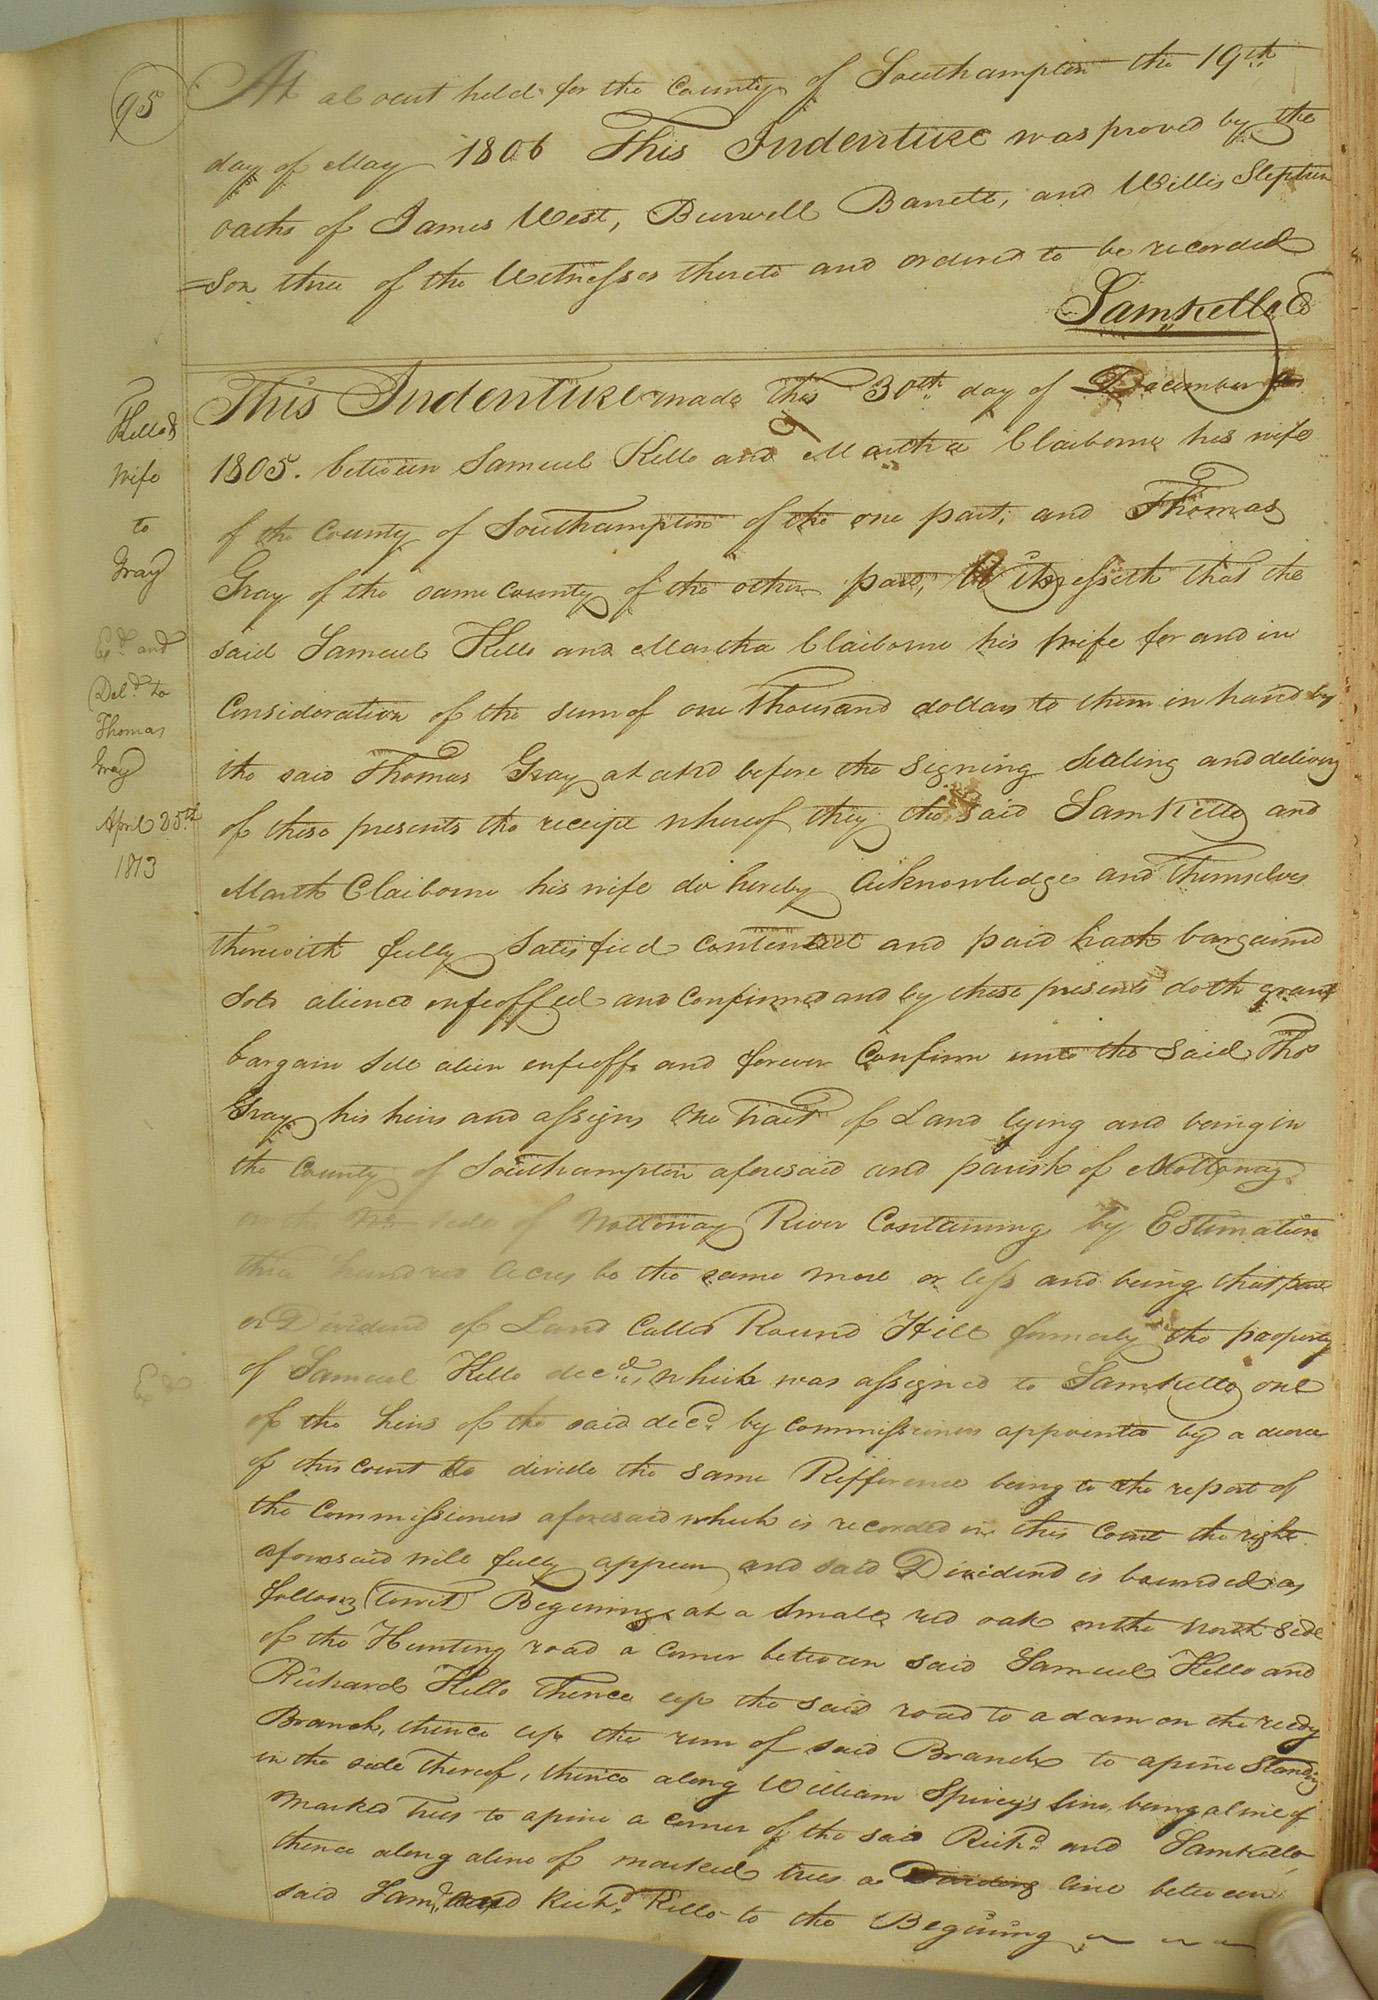 95
At a Court held for the County of Southampton the 19th
day of May 1806 This Indenture was proved by the
oaths of James West, Burwell Barrett, and Willis Stephen
=son three of the Witnesses thereto and ordered to be recorded
Sam Kello C
Kello &
Wife
to
Gray
Exd. and
Deld. to
Thomas
Gray
April 25th
1813
This Indenture made this 30th day of December
1805. between Samuel Kello and Martha Claiborne his wife
of the County of Southampton of the one part, and Thomas
Gray of the same County of the other part, Witnesseth that the
said Samuel Kello and Martha Claiborne his Wife for and in
Consideration of the sum of one Thousand dollars to them in hand by
the said Thomas Gray at and before the signing sealing and delivery
of these presents the receipt whereof they the said Sam Kello and
Marth Claiborne his wife do hereby Acknowledge and themselves
therewith fully Satisfied Contented and paid hath bargained
Sold aliened enfeoffed and Confirmed and by these presents doth grant
bargain Sell alien enfeoff and forever Confirm unto the said Thos
Gray his heirs and assigns One Tract of Land lying and being in
the County of Southampton aforesaid and parish of Nottoway
on the side of Nottoway River Containing by Estimation
three hundred Acres be the same more or less and being that part
or Dividend of Land Called Round Hill formerly the property
of Samuel Kello decd., which was assigned to Sam Kello one
of the heirs of the said decd. by Commissioners appointed by a decree
of this Court to divide the same Refference being to the report of
the Commissioners aforesaid which is recorded in this Court the right
aforesaid will fully appear and said Dividend is bounded as
follows (towit) Begining at a small red oak on the North Side
of the Hunting road a Corner between said Samuel Kello and
Richard Kello thence up the said road to a dam on the reedy
Branch, thence up the run of said Branch to a pine standing
in the side thereof, thence along William Spivey's line, being a line of
Marked Trees to a pine a Corner of the said Richd. and Sam Kello,
thence along a line of marked trees a Dividing line between
said Saml. and Richd. Kello to the Begining
Ex